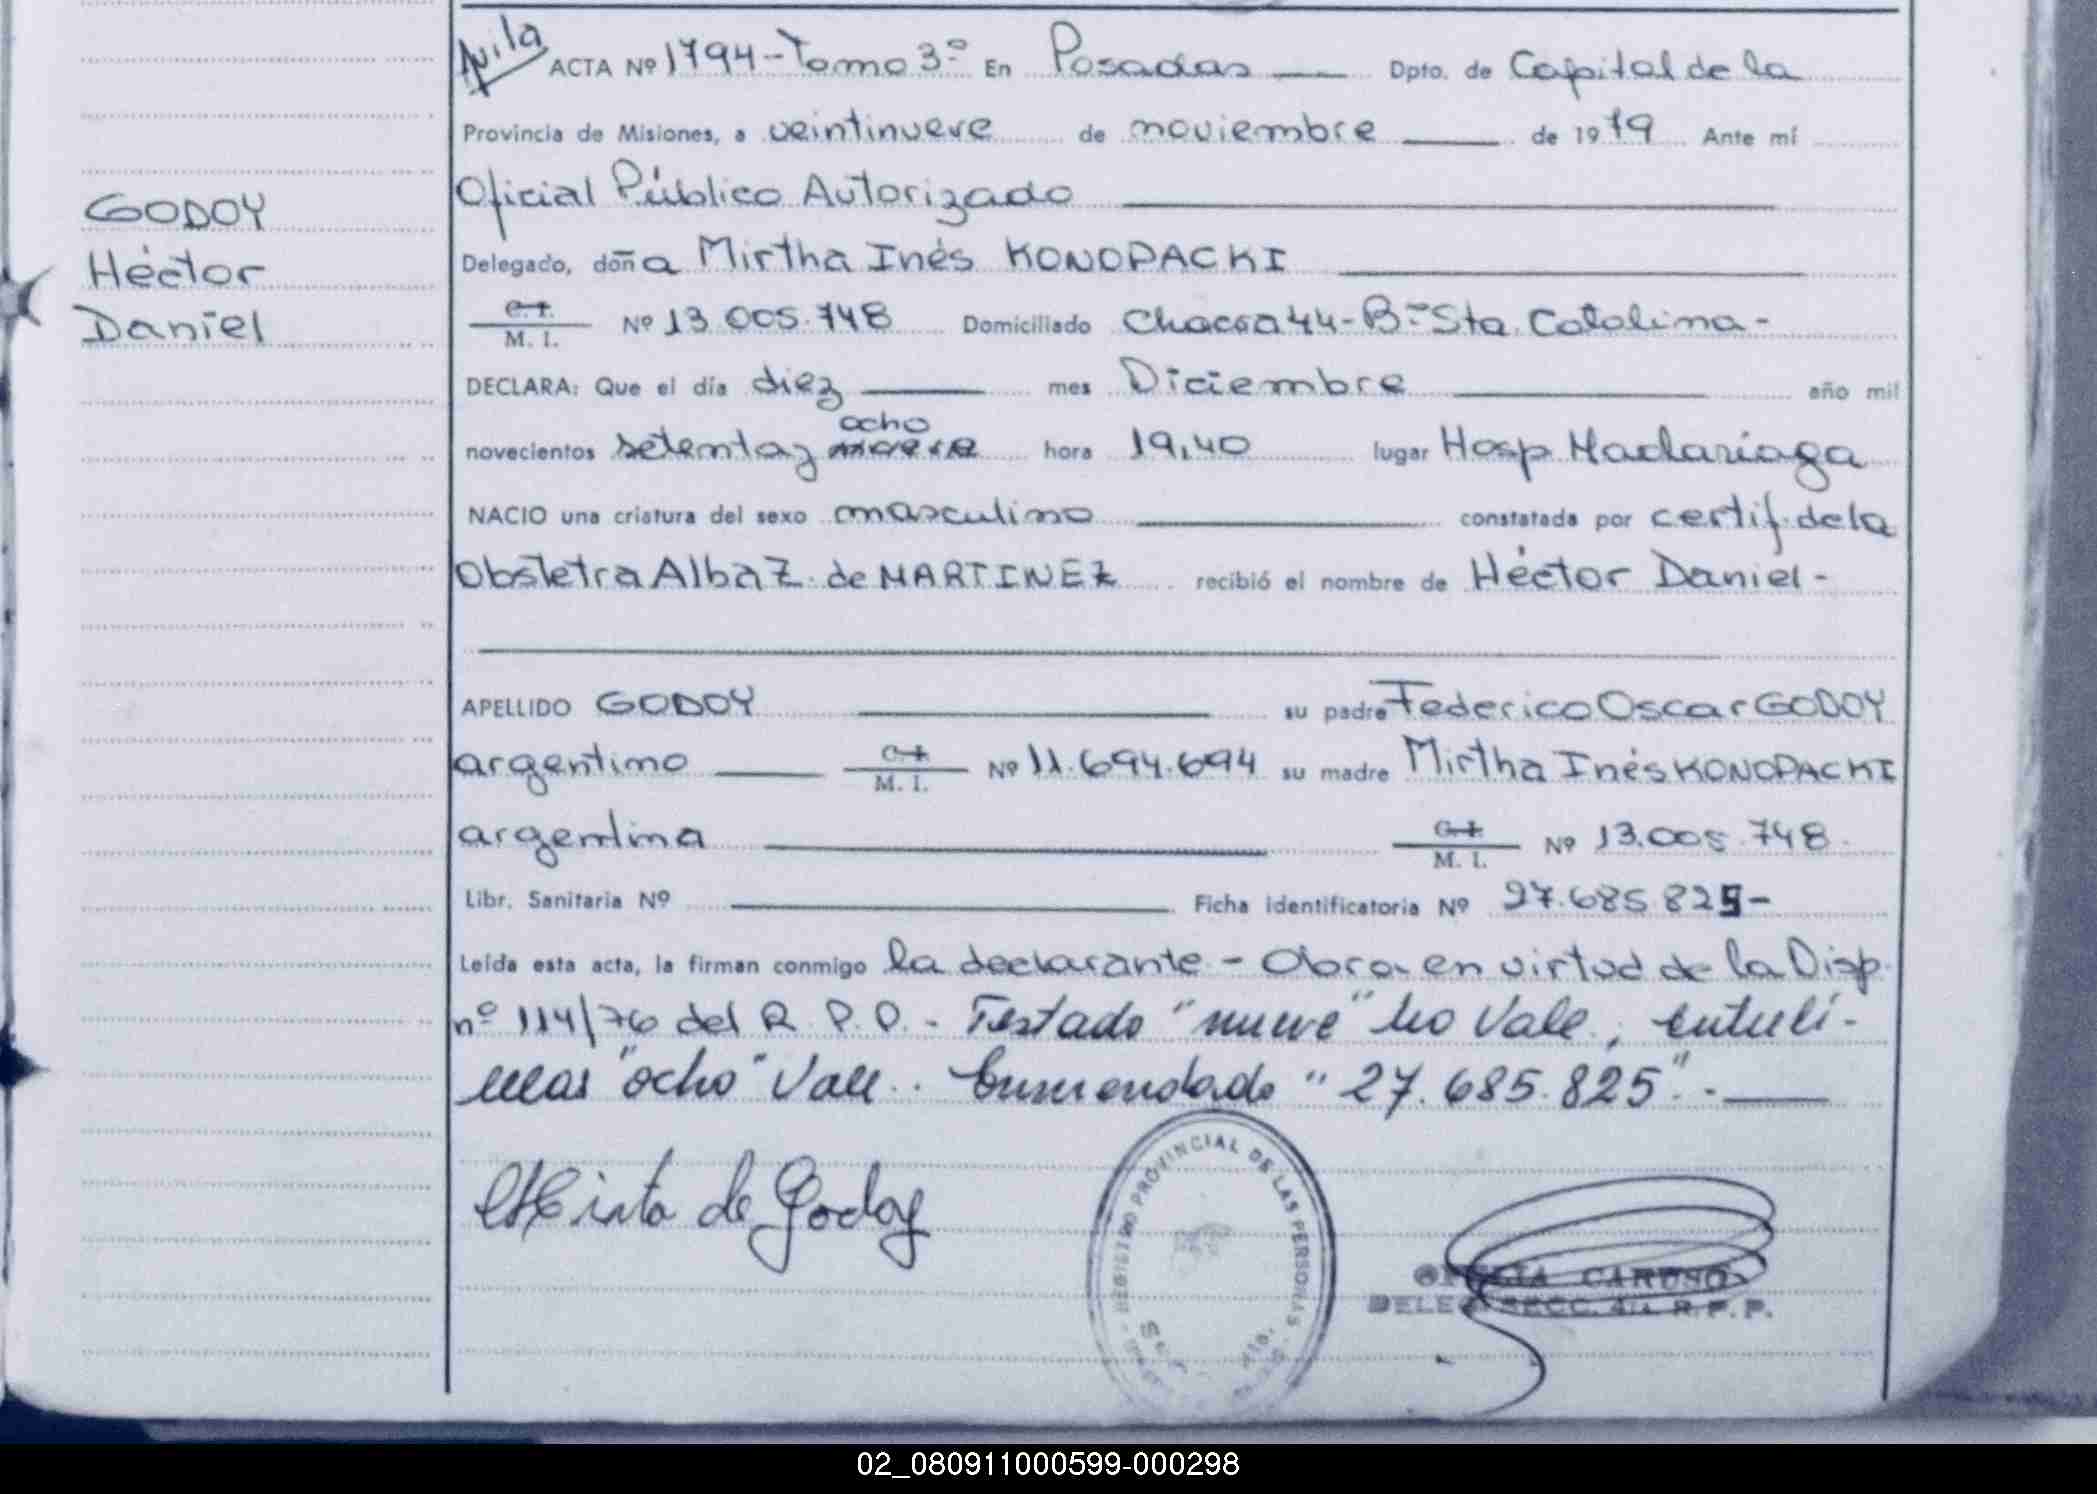 Avila ACTA Nº 1794 - Tomo 3º En Posadas Dpto. de Capital de la
Provincia de Misiones, a veintinueve de noviembre de 1979 Ante mí
Oficial Público Autorizado
GODOY
Héctor
Daniel
Delegado, doña Mirtha Inés KONOPACKI
C.I. M. I. Nº 13.005.748 Domiciliado Chacra 44 - Bº Sta. Catalina -
DECLARA: Que el día diez mes Diciembre año mil
ocho
novecientos setenta y nueve hora 19,40 lugar Hosp Madariaga
NACIO una criatura del sexo masculino constatada por certif. de la
Obstetra Alba Z. de MARTINEZ recibió el nombre de Héctor Daniel -
APELLIDO GODOY su padre Federico Oscar GODOY
argentino C.I. M. I. Nº 11.694.694 su madre Mirtha Inés KONOPACKI
argentina C.I. M. I. Nº 13.005.748
Libr. Sanitaria Nº Ficha identificatoria Nº 27.685.825 -
Leída esta acta, la firman conmigo la declarante - Obra en virtud de la Disp
nº 114/76 del R. P. P. - Testado "nueve" No Vale, entrelí-
neas "ocho" Vale. Enmendado "27.685.825". -
Mirta de Godoy
REGISTRO PROVINCIAL DE LAS PERSONAS
CARUSO
DELEG SECC. 4ta R.P.P.
02_080911000599-000298